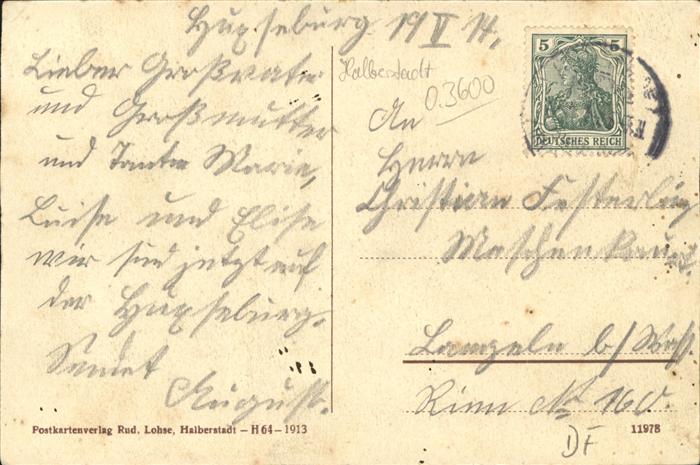 Huyseburg 19 V 14.
Lieber Großvater
und Großmutter
und Tante Marie,
Luise und Elise
wir sind jetzt auf
der Huyseburg.
Sendet
August.
Halberstadt
0.3600
An
Herrn
Christian Festerling
Langeln b/
№ 160.
DF
5 5
DEUTSCHES REICH
Postkartenverlag Rud. Lohse, Halberstadt – H 64 – 1913
11978